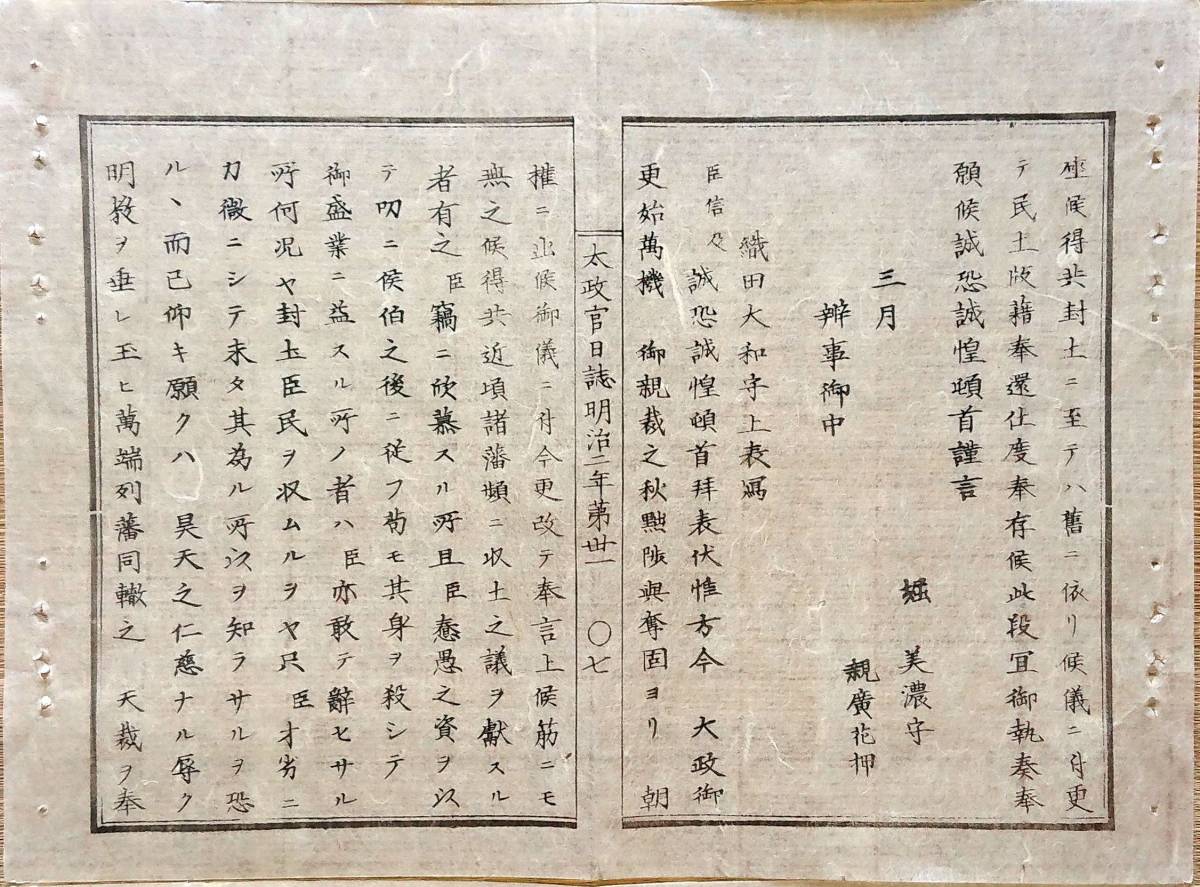 座候得共封土ニ至テハ舊ニ依リ候儀ニ付更
テ民土版籍奉還仕度奉存候此段宜御執奏奉
願候誠恐誠惶頓首謹言
三月 堀 美濃守
親廣花押
辨事御中
織田大和守上表寫
臣信及誠恐誠惶頓首拜表伏惟方今 大政御
更始萬機 御親裁之秋黜陟與奪固ヨリ 朝
太政官日誌明治二年第卅一 〇七
權ニ出候御儀ニ付今更改テ奉言上候筋ニモ
無之候得共近頃諸藩頻ニ収土之議ヲ獻スル
者有之臣竊ニ欣慕スル所且臣惷愚之資ヲ以
テ叨ニ侯伯之後ニ從フ苟モ其身ヲ殺シテ
御盛業ニ益スル所ノ者ハ臣亦敢テ辭セサル
所何况ヤ封土臣民ヲ収ムルヲヤ只臣才劣ニ
力微ニシテ未タ其為ル所以ヲ知ラサルヲ恐
ル丶而已仰キ願クハ 昊天之仁慈ナル辱ク
明教ヲ垂レ玉ヒ萬端列藩同轍之 天裁ヲ奉